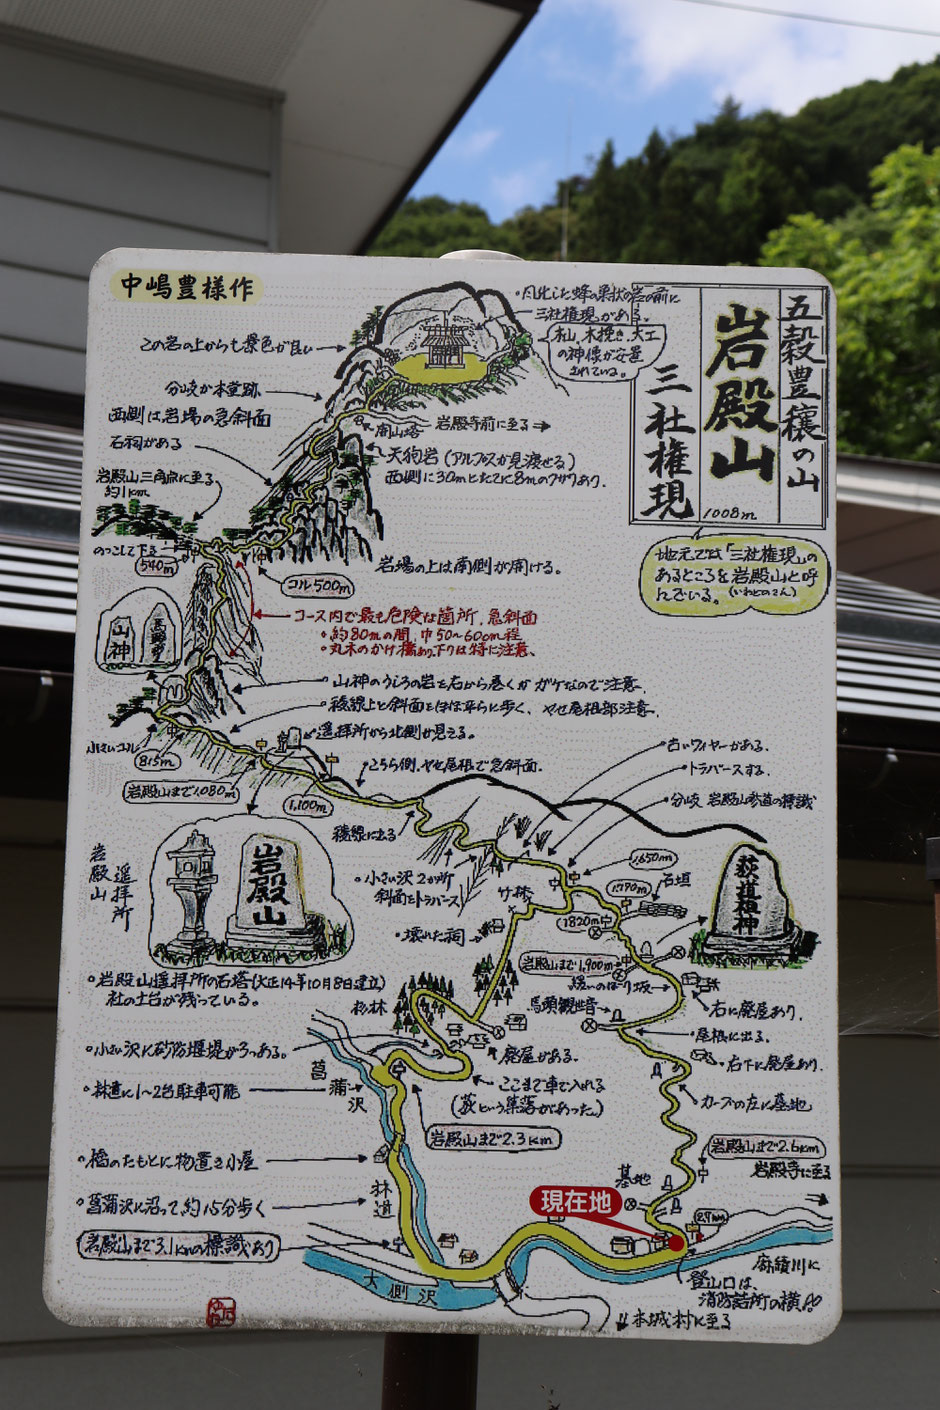 中嶋豊様作
五穀豊穣の山
岩殿山
1008m
三社権現
地元では「三社権現」の
あるところを岩殿山と呼
んでいる。(いわどのさん)
・風化した蜂の巣状の岩の前に
三社権現がある。
木挽き、大工
の神像が安置
されている。
この岩の上からも景色が良い
分岐か本堂跡
西側は岩場の急斜面
石祠がある
開山塔
岩殿寺前に至る
天狗岩(アルプスが見渡せる)
西側に30mとたてに8mのクサリあり.
岩殿山三角点に至る
約1km
のっこして下る
540m
コル500m
岩場の上は南側が開ける。
コース内で最も危険な箇所.急斜面
・約80mの間,巾50〜60cm程
・丸木のかけ橋あり、下りは特に注意、
山神
・山神のうしろの岩を右から巻くがガケなので注意.
・稜線上と斜面をほぼ平らに歩く、やせ尾根部注意.
・遥拝所から北側が見える。
小さいコル
815m
岩殿山まで1,080m
・こちら側.やせ尾根で急斜面.
1,100m
稜線に出る
・古いワイヤーがある.
・トラバースする.
・分岐 岩殿山参道の標識
岩殿山
遥拝所
岩殿山
・小さい沢2か所
斜面をトラバース
竹林
1,650m
1,770m
石垣
1820m
萩道祖神
・壊れた祠
岩殿山まで1,900m
・緩いのぼり坂
馬頭観世音
・右に廃屋あり.
・尾根に出る.
・右下に廃屋あり.
・カーブの左に墓地
。岩殿山遥拝所の石塔(大正14年10月8日建立)
社の土台が残っている。
杉林
。小さい沢に砂防堰堤が3つある。
・廃屋がある.
・ここまで車で入れる
(荻という集落があった。)
・林道に1〜2台駐車可能
菖蒲沢
岩殿山まで2.3km
岩殿山まで2.6km
岩殿寺に至る
。橋のたもとに物置き小屋
。菖蒲沢に沿って約15分歩く
林道
墓地
現在地
2.7km
。岩殿山まで3.1kmの標識あり
大側沢
麻績川に
登山口は
消防詰所の横
本城村に至る